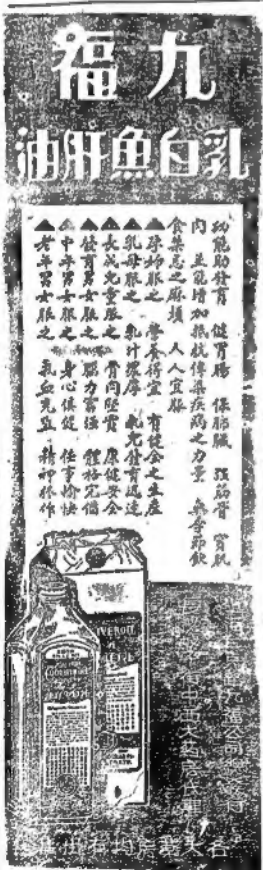 九福
乳白魚肝油
功能助發育　健胃腸　保肺臟　強筋骨　實肌
肉　並能增加抵抗傳染疾病之力量　無拿節飲
食禁忌之麻煩　人人宜服
▲孕婦服之　營養得宜　有健全之生產
▲乳母服之　乳汁濃厚　乳兒發育迅速
▲長成兒童服之　骨肉堅實　康健安全
▲發育男女服之　腦力富強　體格完備
▲中年男女服之　身心俱健　任事愉快
▲老年男女服之　氣血充盈　精神振作
九福公司
中西大藥房代理
各大藥房均有出售